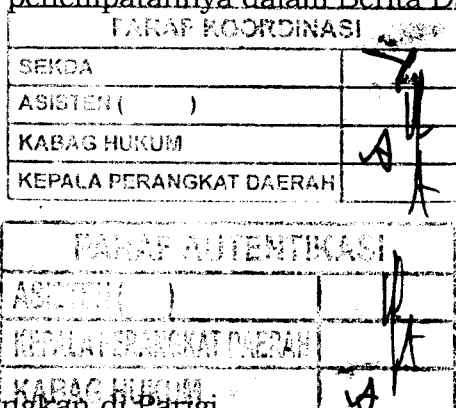 penempatannya dalam Berita D
PARAF KOORDINASI
SEKDA
ASISTEN ( )
KABAG HUKUM
KEPALA PERANGKAT DAERAH
PARAF AUTENTIKASI
ASISTEN ( )
KEPALA PERANGKAT DAERAH
KABAG HUKUM
ngkan di Parigi